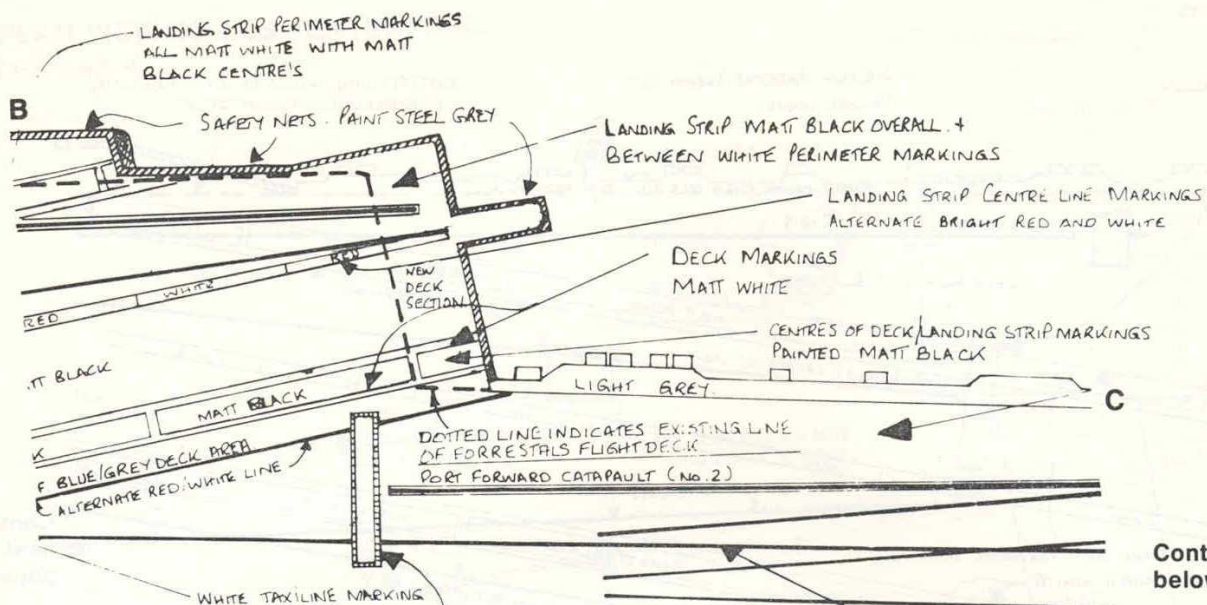 LANDING STRIP PERIMETER MARKINGS
ALL MATT WHITE WITH MATT
BLACK CENTRE'S
B
SAFETY NETS. PAINT STEEL GREY
LANDING STRIP MATT BLACK OVERALL. +
BETWEEN WHITE PERIMETER MARKINGS
LANDING STRIP CENTRE LINE MARKINGS
ALTERNATE BRIGHT RED AND WHITE
NEW
DECK
SECTION
DECK MARKINGS
MATT WHITE
WHITE
RED
CENTRES OF DECK/LANDING STRIP MARKINGS
PAINTED MATT BLACK
TT BLACK
MATT BLACK
LIGHT GREY.
C
K
DOTTED LINE INDICATES EXISTING LINE
OF FORRESTALS FLIGHT DECK
PORT FORWARD CATAPAULT (No.2)
F BLUE/GREY DECK AREA
ALTERNATE RED/WHITE LINE
Cont
below
WHITE TAXILINE MARKING